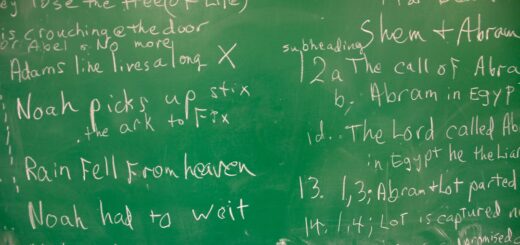 lose the tree (of Life)
is crouching @ the door
or Abel & No more
Adams line lives a long X
Noah picks up stix
the ark to Fix
Rain Fell From heaven
Noah had to weit
subheading Shem & Abram
12 a The call of Abra
b; Abram in Egyp
id.. The Lord called Ab
in Egypt he the Liar
13. 1,3; Abram & Lot parted
14. 1,4; Lot is captured
promised